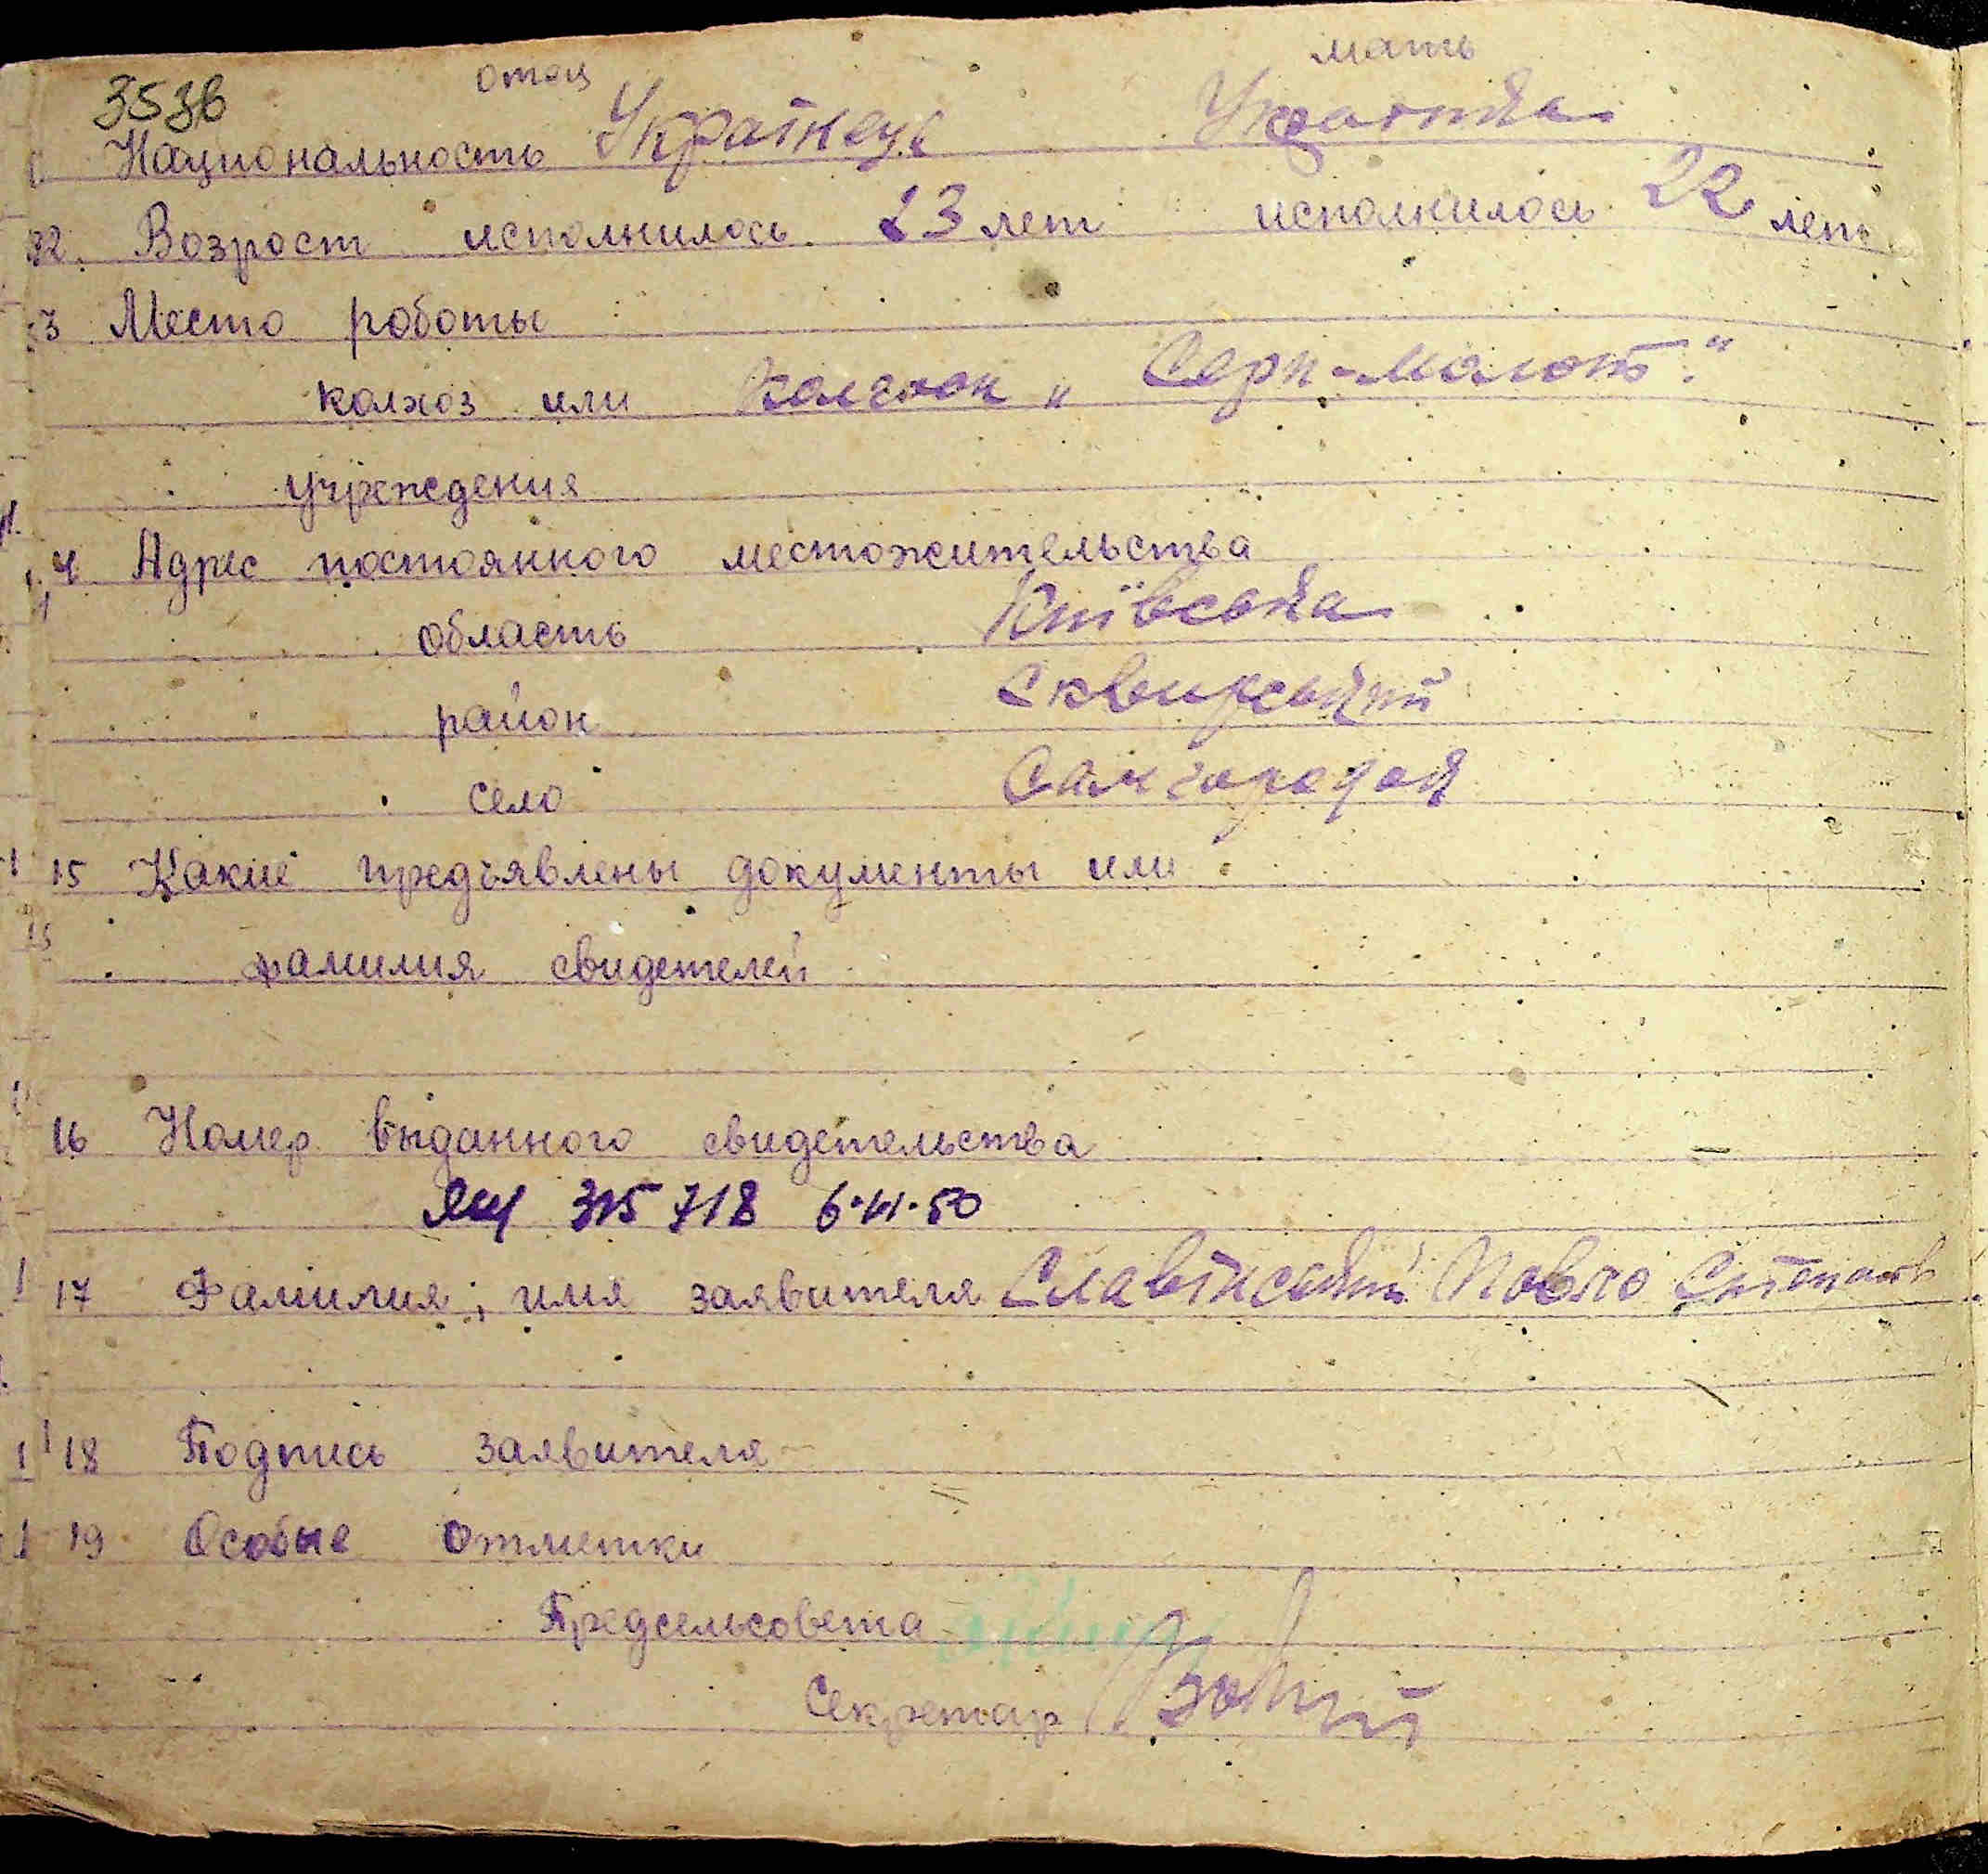 353в
отец мать
Національность Українець Українка
12. Возрост исполнилось 23 лет исполнилось 22 лет
13 Место роботы
колхоз или Колгосп „Серп-Молот"
учреждения
14 Адрес постоянного местожительства
область Київська
район Сквирський
село Самгородок
15 Какие предъявлены документы или
фамилия свидетелей
16 Номер выданного свидетельства
315718 6·XI·50
17 Фамилия, имя заявителя Славінський Павло Степанов
18 Подпись заявителя
19 Особые отметки
Предсельсовета
Секретар